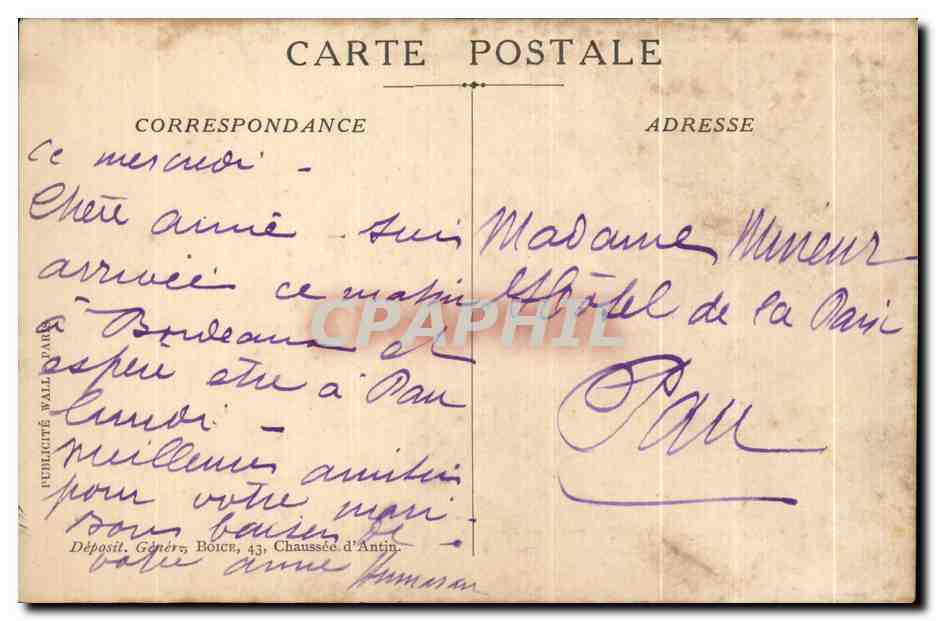 CARTE POSTALE
CORRESPONDANCE
ce mercredi -
Chère amie suis
arrivée ce matin
à Bordeaux et
espère être à Pau
lundi -
meilleures amitiés
pour votre mari -
Bons baisers de
votre amie
ADRESSE
Madame
Hôtel de la Paix
Pau
PUBLICITÉ WALL PARIS
Déposit. Génér., BOICE, 43, Chaussée d'Antin.
CPAPHIL